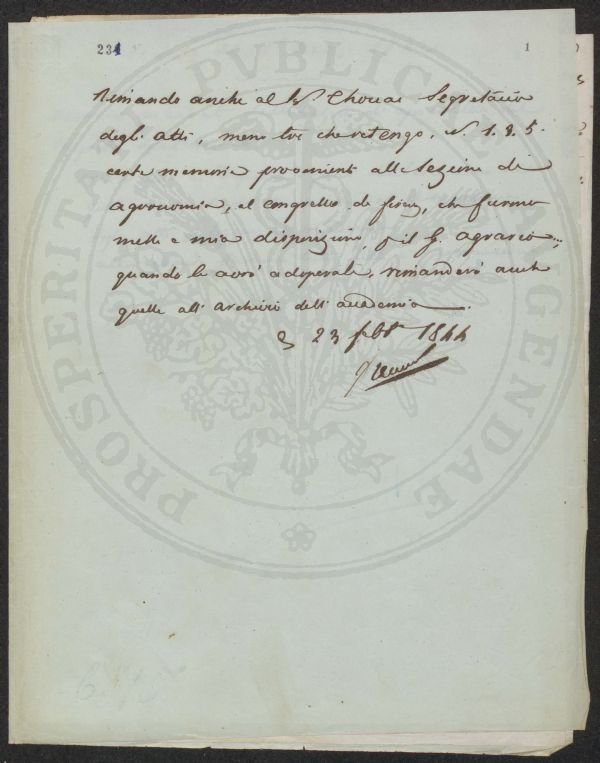 234 1
Rimando anche al Sr. Segretario
degli atti, meno tre che ritengo, N. 1. 3. 5.
certe memorie provenienti alla Sezione di
agronomia, al congresso di che furono
messe a mia disposizione, pil G. agrario
quando le avrò adoperate, rimanderò anche
quelle all'archivio dell'accademia.
23 febbr 1844
PROSPERITATI PUBLICAE AUGENDAE